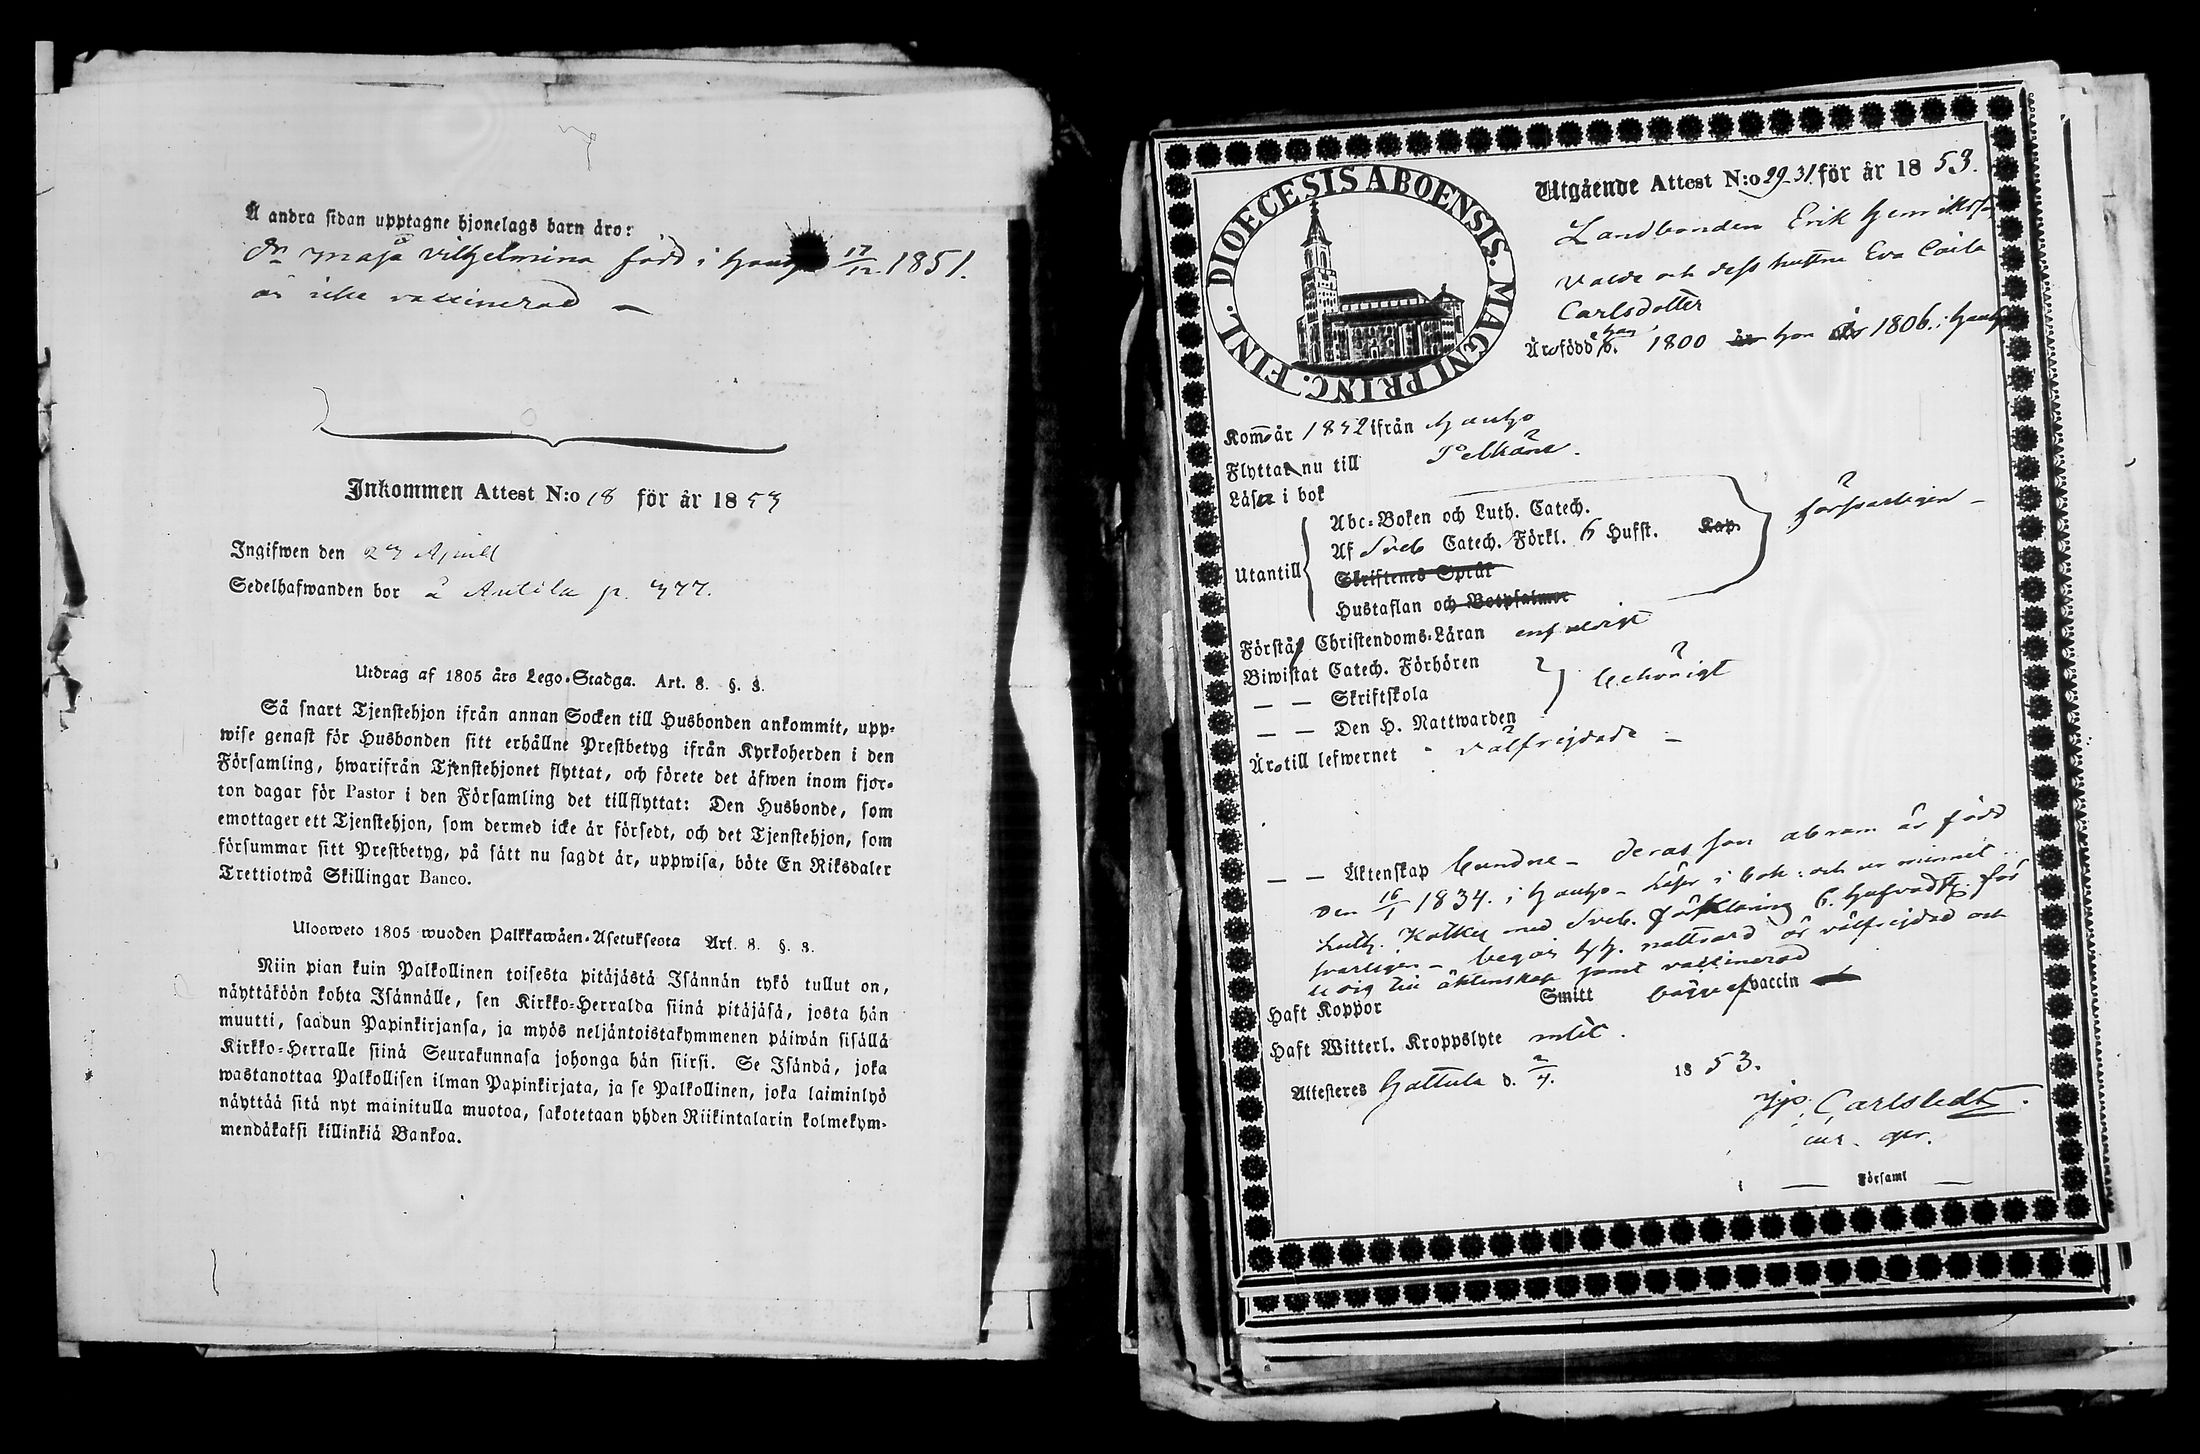 Å andra sidan upptagne hjonelags barn äro:
Dr Maja Vilhelmina född i Hauho 17/12 1851.
är icke vaccinerad —
Inkommen Attest N:o 18 för år 1853
Ingifwen den 23 Aprill
Sedelhafwanden bor å Anttila p. 377.
Utdrag af 1805 års Lego-Stadga. Art. 8. §. 3.
Så snart Tjenstehjon ifrån annan Socken till Husbonden ankommit, upp-
wise genast för Husbonden sitt erhållne Prestbetyg ifrån Kyrkoherden i den
Församling, hwarifrån Tjenstehjonet flyttat, och förete det äfwen inom fjor-
ton dagar för Pastor i den Församling det tillflyttat: Den Husbonde, som
emottager ett Tjenstehjon, som dermed icke är försedt, och det Tjenstehjon, som
försummar sitt Prestbetyg, på sätt nu sagdt är, uppwisa, böte En Riksdaler
Trettiotwå Skillingar Banco.
Ulosweto 1805 wuoden Palkkawäen-Asetuksesta Art. 8. §. 3.
Niin pian kuin Palkollinen toisesta pitäjästä Isännän tykö tullut on,
näyttäköön kohta Isännälle, sen Kirkko-Herralda siinä pitäjäsä, josta hän
muutti, saadun Papinkirjansa, ja myös neljäntoistakymmenen päiwän sisällä
Kirkko-Herralle siinä Seurakunnasa johonga hän siirsi. Se Isändä, joka
wastanottaa Palkollisen ilman Papinkirjata, ja se Palkollinen, joka laiminlyö
näyttää sitä nyt mainitulla muotoa, sakotetaan yhden Riikintalarin kolmekym-
mendäkaksi killinkiä Bankoa.
DIOECESIS ABOENSIS. MAGNI PRINC. FINL.
Utgående Attest N:o 29-31 för år 1853.
Landbonden Erik Henriksson
Valde och dess hustru Eva Caisa
Carlsdotter
Äro född han 1800 hon 1806. i Hauho
Kom år 1832 ifrån Hauho
Flyttar nu till Pelkäne.
Läsa i bok
Utantill
Abc-Boken och Luth. Catech.
Af Sveb Catech. Förkl. 6 Hufst. Kap.
Skriftenes Språk
Hustaflan och Botpsalmer
försvarligen —
Förstå Christendoms-Läran enfaldigt
Biwistat Catech. Förhören
— — Skriftskola
— — Den H. Nattwarden
behörigt
Äro till lefwernet välfrejdade —
— — Äktenskap bundne — deras son Abram är född
den 16/1 1834. i Hauho — Läser i bok: och ur minnet
Luth. Katkes med Sveb. förklaring 6. Hufvudst. för
svarligen — begår H. H. nattvard är välfrejdad och
ledig till äktenskap samt vaccinerad
Haft Koppor Smitt bägge af vaccin
Haft Witterl. Kroppslyte intet.
Attesteres Hattula d. 2/4. 1853.
Carlstedt.
Församl